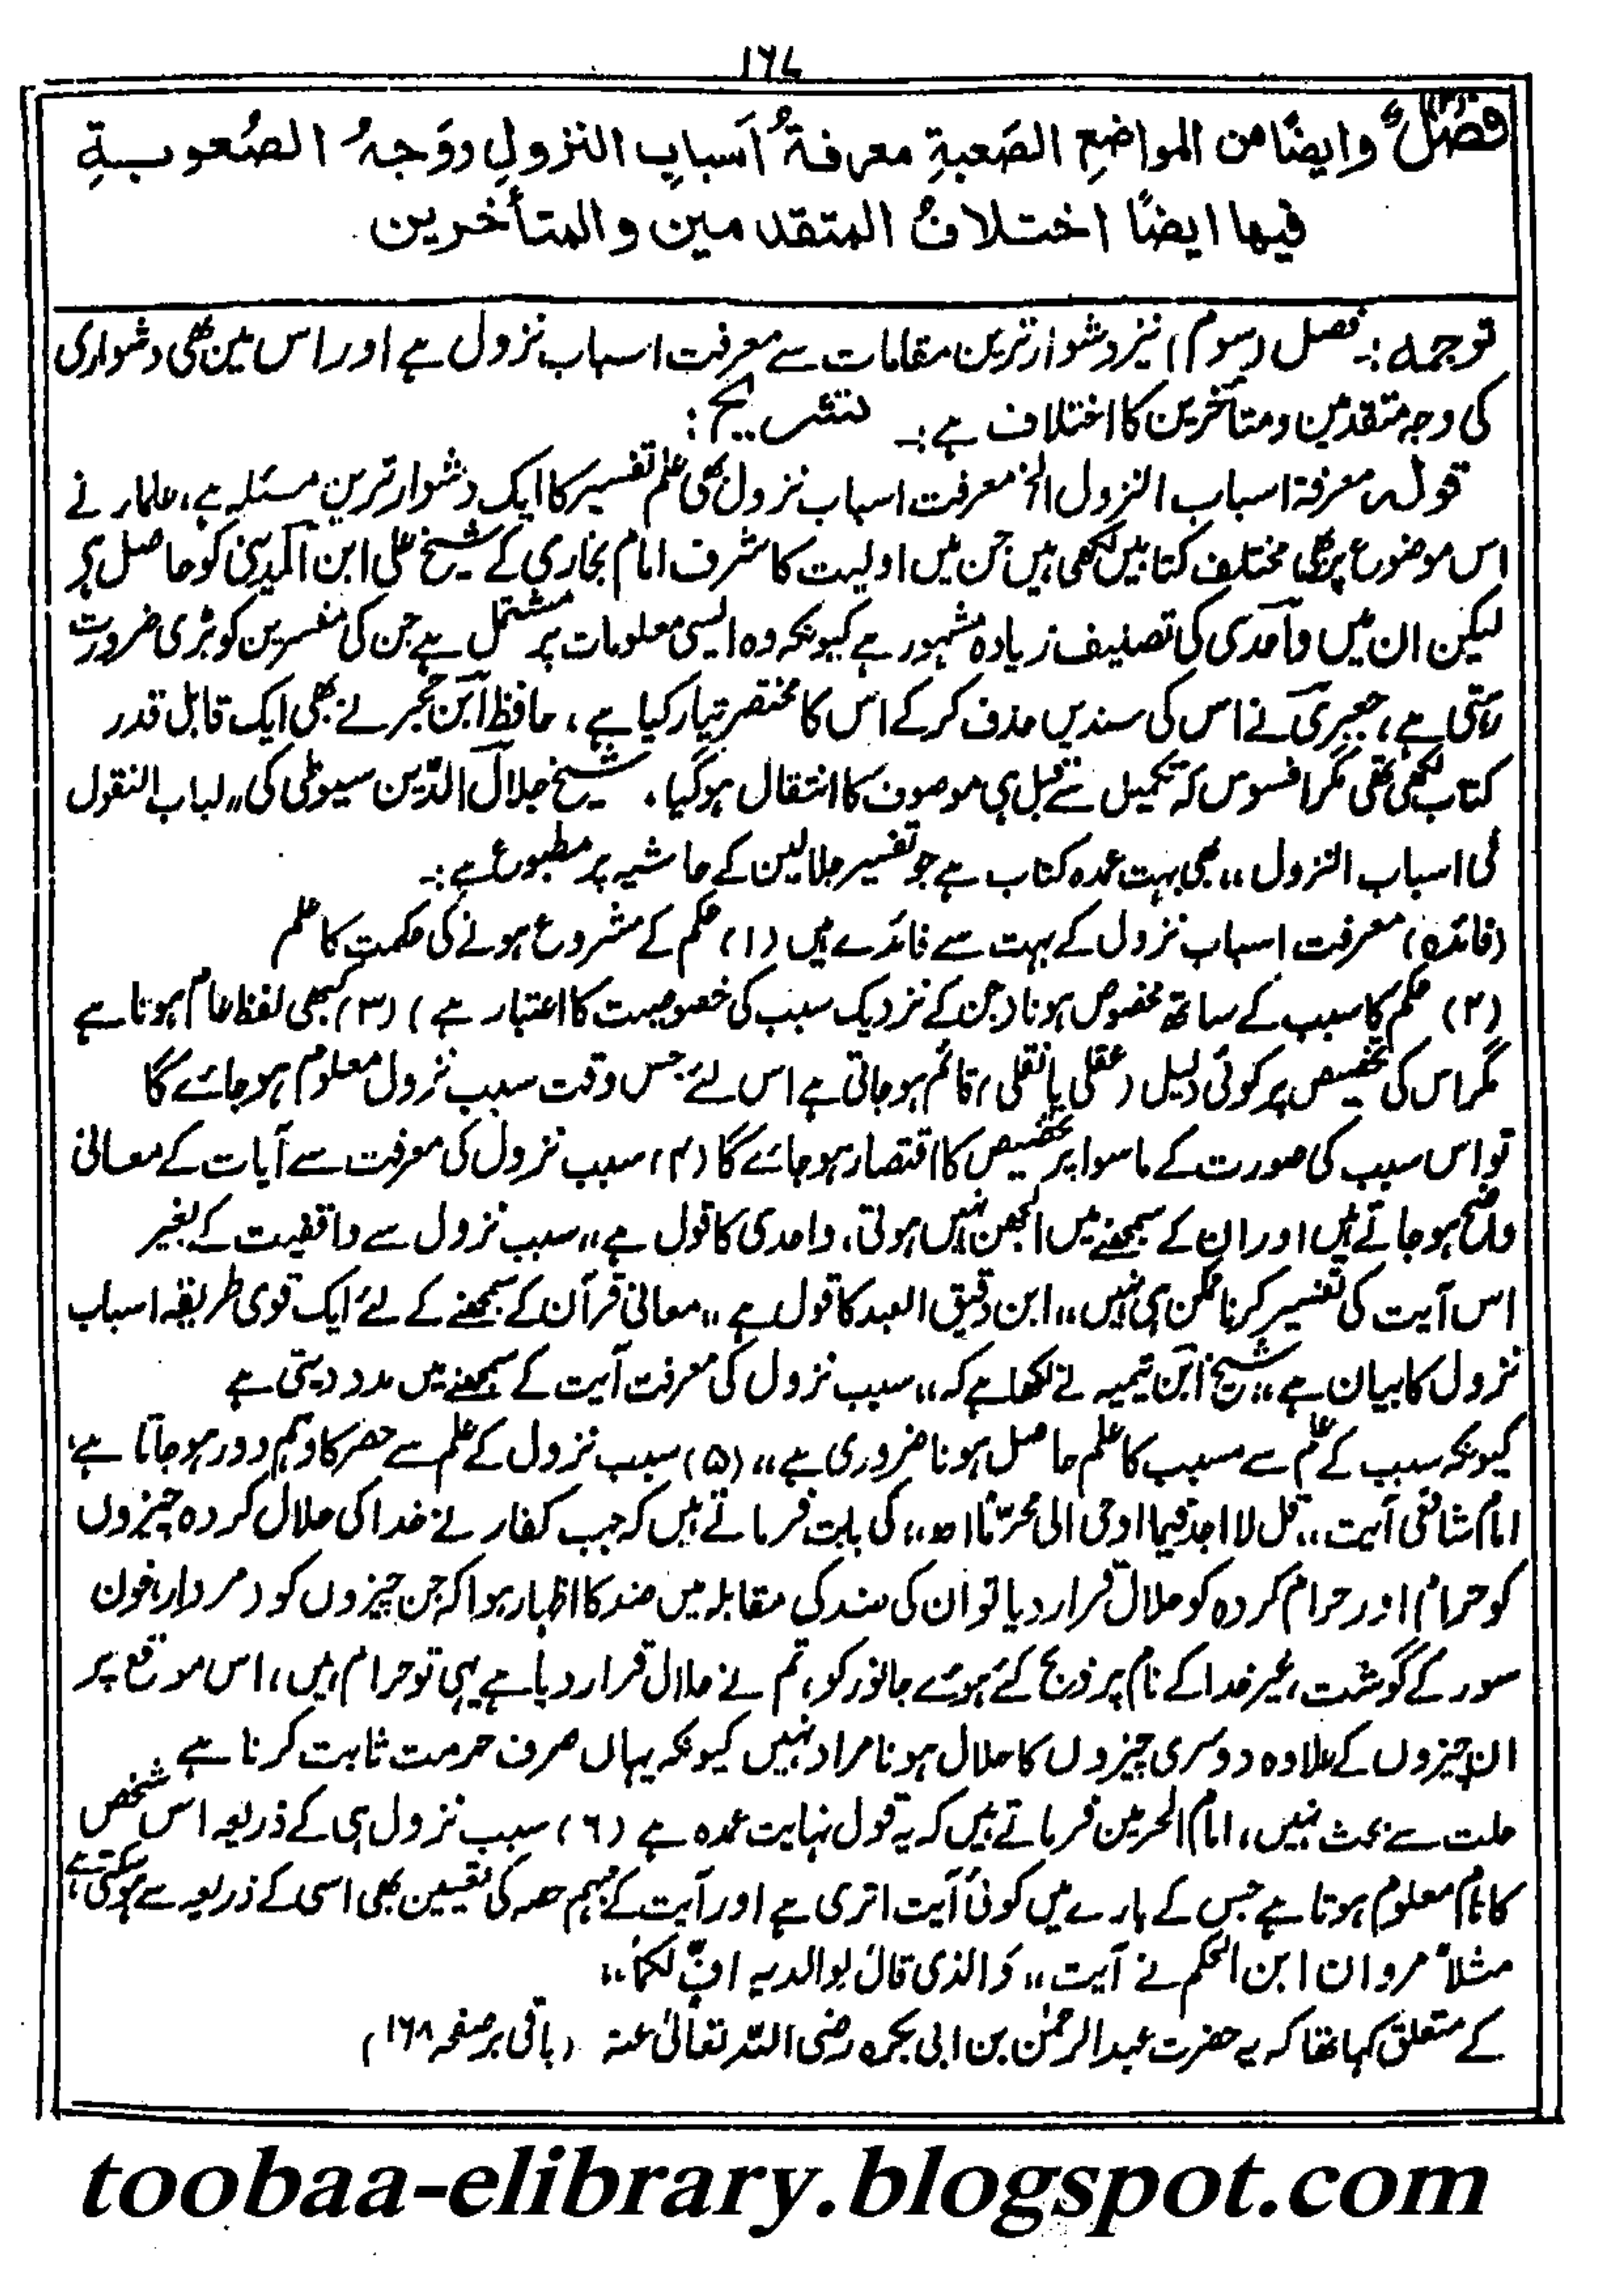 ۱۶۷
فصل (۳) وایضًا من المواضعِ الصَعبةِ معرفةُ اَسبابِ النزولِ ووَجهُ الصُعوبةِ
فیها ایضًا اختلافُ المتقدمین والمتأخرین
توجمه:۔ فصل (سوم) نیز دشوار ترین مقامات سے معرفت اسباب نزول ہے اور اس میں بھی دشواری
کی وجہ متقدمین و متأخرین کا اختلاف ہے:۔ تشریح:
قولہ معرفۃ اسباب النزول الخ معرفت اسباب نزول بھی علم تفسیر کا ایک دشوار ترین مسئلہ ہے، علمار نے
اس موضوع پر بھی مختلف کتابیں لکھی ہیں جن میں اولیت کا شرف امام بخاری کے شیخ علی ابن المدینی کو حاصل ہے
لیکن ان میں واحدی کی تصنیف زیادہ مشہور ہے کیونکہ وہ ایسی معلومات پر مشتمل ہے جن کی مفسرین کو بڑی ضرورت
رہتی ہے، جعبری نے اس کی سندیں حذف کر کے اس کا مختصر تیار کیا ہے، حافظ ابن حجر نے بھی ایک قابل قدر
کتاب لکھی تھی مگر افسوس کہ تکمیل سے قبل ہی موصوف کا انتقال ہوگیا، شیخ جلال الدّین سیوطی کی ،،لباب النقول
فی اسباب النزول،، بھی بہت عمدہ کتاب ہے جو تفسیر جلالین کے حاشیہ پر مطبوع ہے:۔
(فائدہ) معرفت اسباب نزول کے بہت سے فائدے ہیں (۱) حکم کے مشروع ہونے کی حکمت کا علم
(۲) حکم کا سبب کے ساتھ مخصوص ہونا (جن کے نزدیک سبب کی خصوصیت کا اعتبار ہے) (۳) کبھی لفظ عام ہوتا ہے
مگر اس کی تخصیص پر کوئی دلیل (عقلی یا نقلی) قائم ہوجاتی ہے اس لئے جس وقت سبب نزول معلوم ہوجائے گا
تو اس سبب کی صورت کے ماسوا پر تخصیص کا اقتصار ہوجائے گا (۴) سبب نزول کی معرفت سے آیات کے معانی
واضح ہوجاتے ہیں اور ان کے سمجھنے میں الجھن نہیں ہوتی، واحدی کا قول ہے ،،سبب نزول سے واقفیت کے بغیر
اس آیت کی تفسیر کرنا ممکن ہی نہیں،، ابن دقیق العید کا قول ہے ،،معانی قرآن کے سمجھنے کے لئے ایک قوی طریقہ اسباب
نزول کا بیان ہے،، شیخ ابن تیمیہ نے لکھا ہے کہ ،،سبب نزول کی معرفت آیت کے سمجھنے میں مدد دیتی ہے
کیونکہ سبب کے علم سے مسبب کا علم حاصل ہونا ضروری ہے،، (۵) سبب نزول کے علم سے حصر کا وہم دور ہوجاتا ہے،
امام شافعی آیت ،،قل لا اجد فیما اوحی الی محرّمًا اھ،، کی بابت فرماتے ہیں کہ جب کفار نے خدا کی حلال کردہ چیزوں
کو حرام اور حرام کردہ کو حلال قرار دیا تو ان کی ضد کی مقابلہ میں ضد کا اظہار ہوا کہ جن چیزوں کو (مردار، خون
سور کے گوشت، غیر خدا کے نام پر ذبح کئے ہوئے جانور کو) تم نے حلال قرار دیا ہے یہی تو حرام ہیں، اس موقع پر
ان چیزوں کے علاوہ دوسری چیزوں کا حلال ہونا مراد نہیں کیونکہ یہاں صرف حرمت ثابت کرنا ہے
حلت سے بحث نہیں، امام الحرمین فرماتے ہیں کہ یہ قول نہایت عمدہ ہے (۶) سبب نزول ہی کے ذریعہ اس شخص
کا نام معلوم ہوتا ہے جس کے بارے میں کوئی آیت اتری ہے اور آیت کے مبہم حصہ کی تعیین بھی اسی کے ذریعہ سے ہوتی ہے
مثلاً مروان ابن الحکم نے آیت ،،وَالذی قال لوالدیه افٍّ لکما،،
کے متعلق کہا تھا کہ یہ حضرت عبدالرحمٰن بن ابی بکرہ رضی اللہ تعالیٰ عنہ (باقی بر صفحہ ۱۶۸)
toobaa-elibrary.blogspot.com